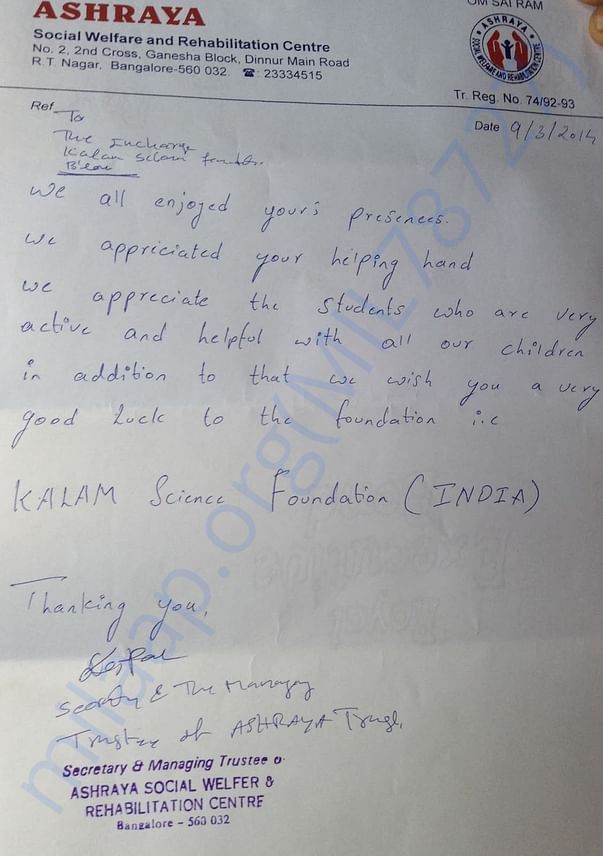 OM SAI RAM
ASHRAYA
Social Welfare and Rehabilitation Centre
No. 2, 2nd Cross, Ganesha Block, Dinnur Main Road
R.T. Nagar, Bangalore-560 032. ☎: 23334515
ASHRAYA
SOCIAL WELFARE AND REHABILITATION CENTRE
Tr. Reg. No. 74/92-93
Ref
Date 9/3/2014
To
The Incharge
Kalam
B'lore
We all enjoyed your's presences.
We appriciated your helping hand
We appreciate the students who are very
active and helpful with all our children
in addition to that we wish you a very
good luck to the foundation i.e
KALAM Science Foundation (INDIA)
Thanking you,
& The
Trustee of ASHRAYA Trust.
Secretary & Managing Trustee o
ASHRAYA SOCIAL WELFER &
REHABILITATION CENTRE
Bangalore - 560 032
milaap.org(MIL78721)